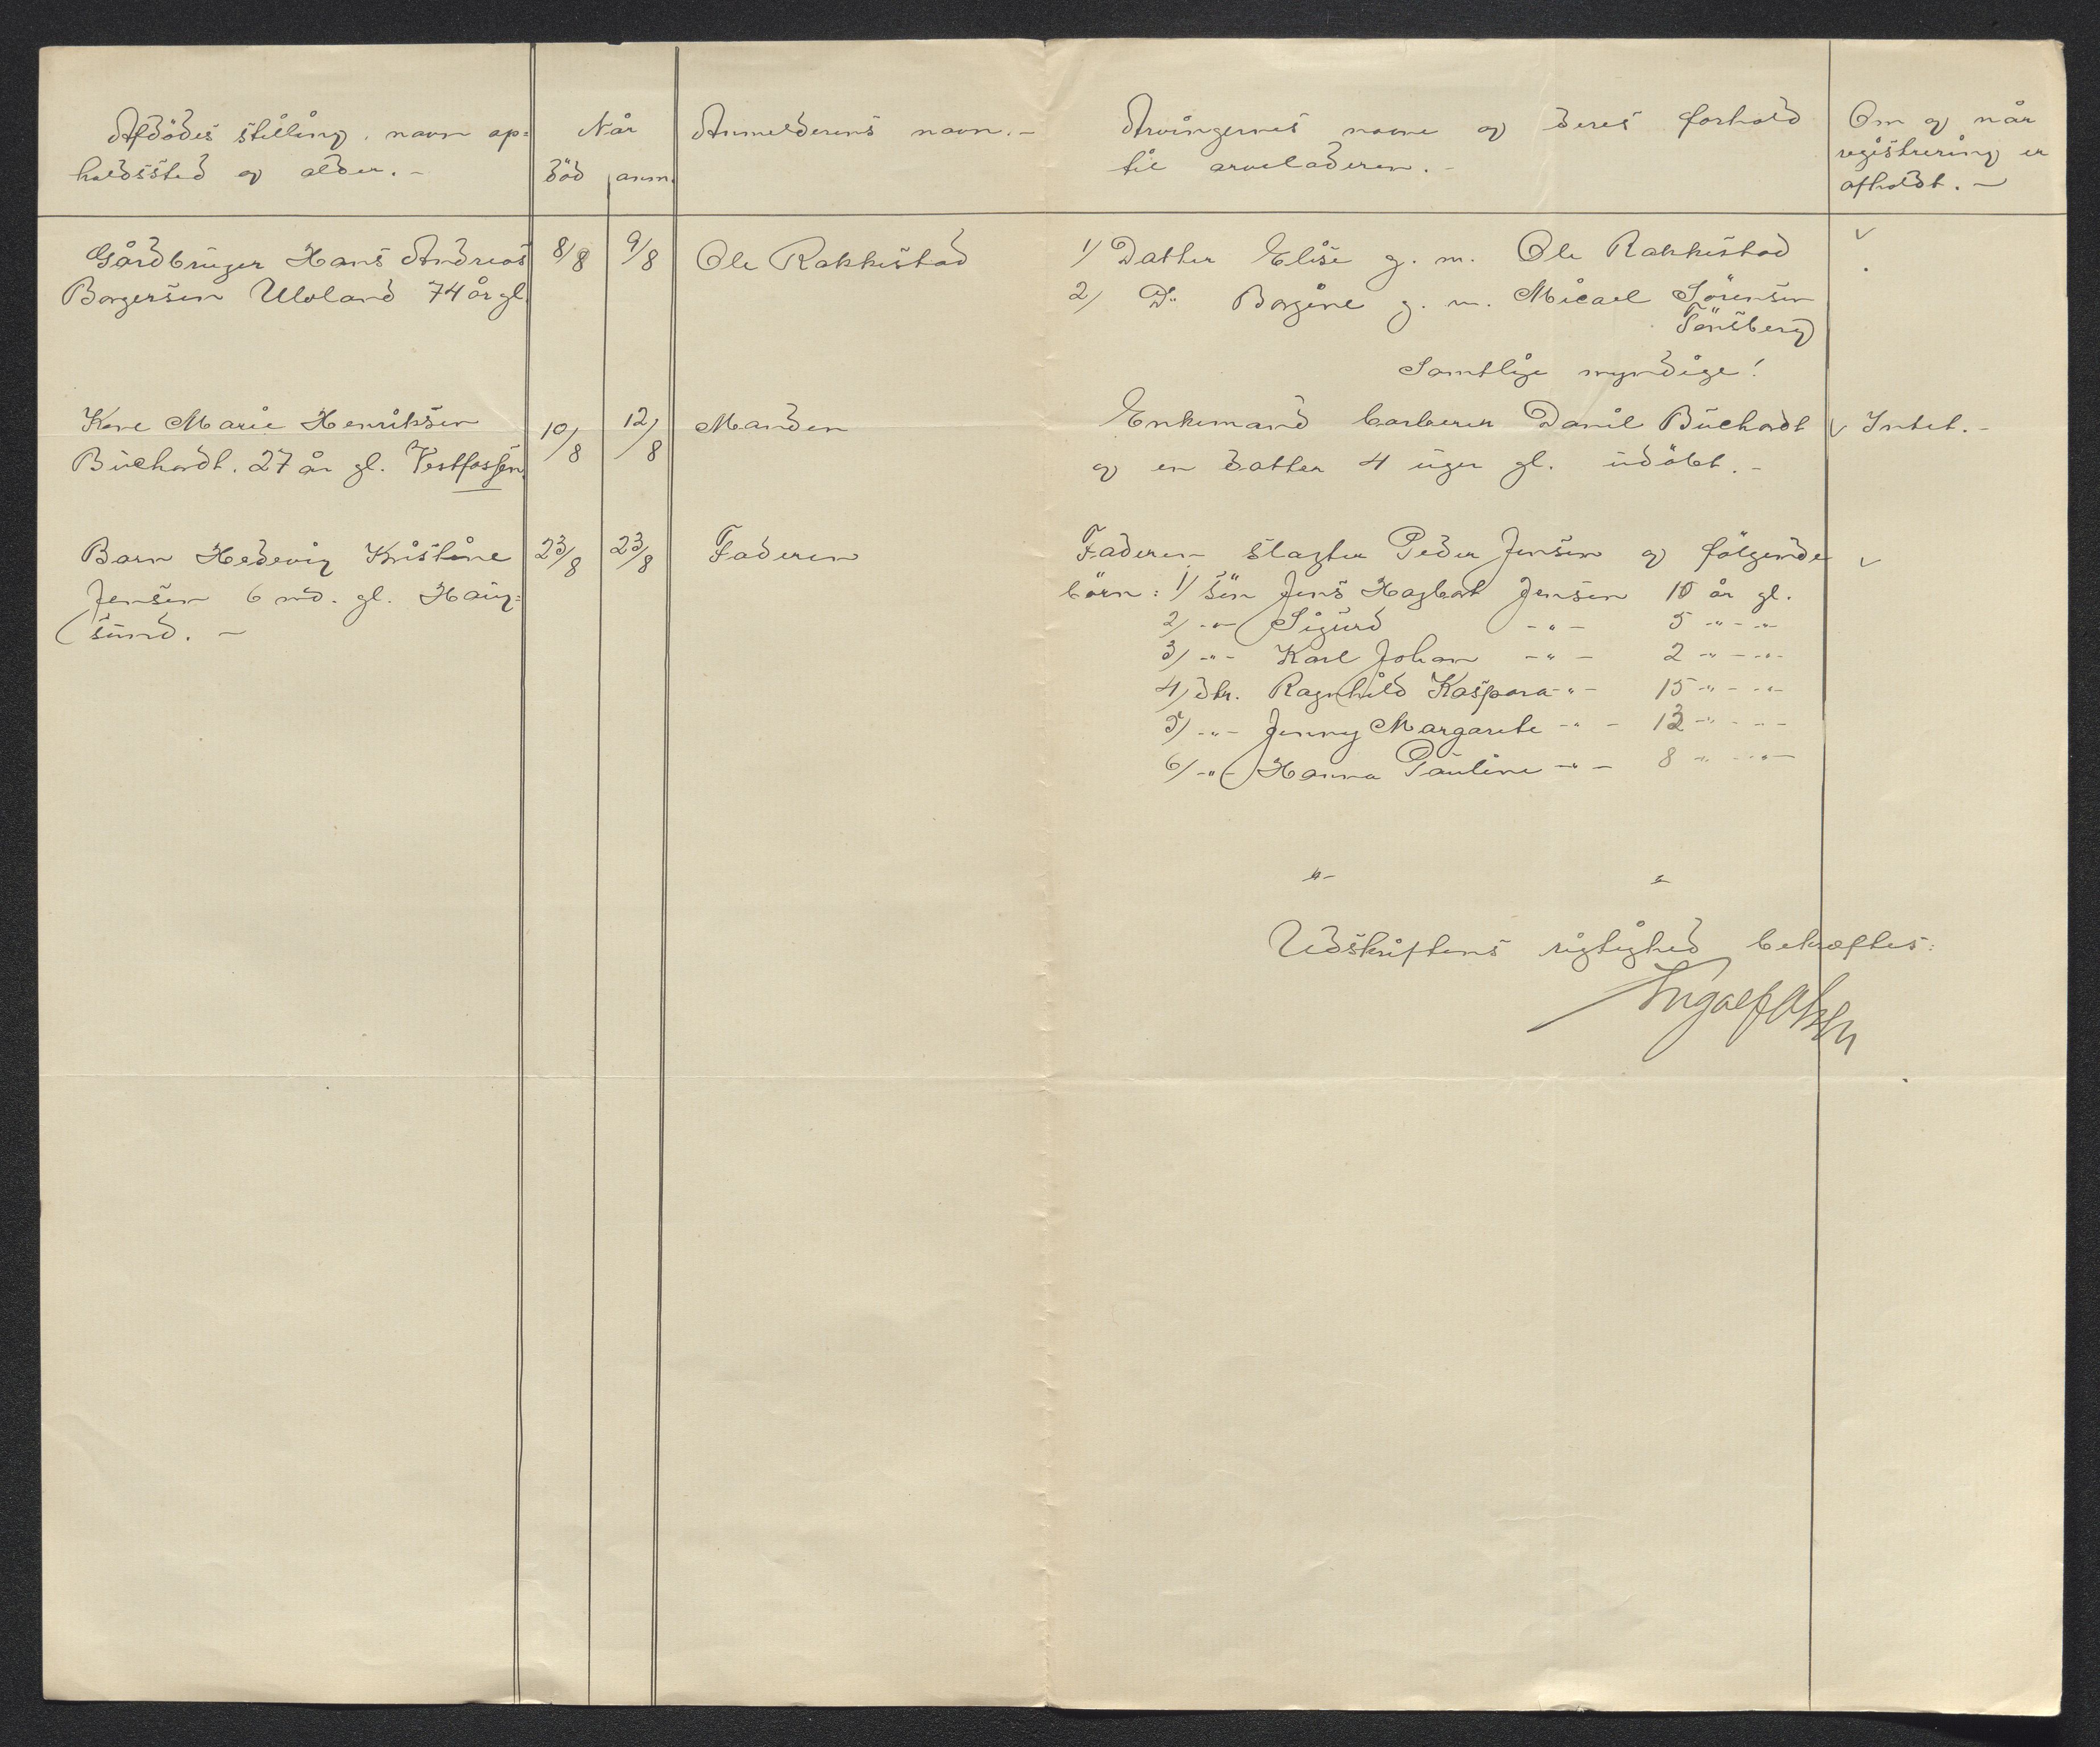 Afdödes stilling, navn op=
holdssted og alder. -
Når
död anm.
Anmelderens navn. -
Arvingernes navne og deres forhold
til arveladeren. -
Om og når
registrering er
afholdt. -
Gårdbruger Hans Andreas
Borgersen Ulvland 74 år gl.
8/8
9/8
Ole Rakkestad
1/ Datter Elise g. m. Ole Rakkestad
2/ Do Borgine g. m. Micael Sörensen
Tönsberg
Samtlige myndige!
Kone Marie Henriksen
Buchardt. 27 år gl. Vestfossen
10/8
12/8
Manden
Enkemand barberer Danil Buchardt
og en datter 4 uger gl. udöbt. -
Intet. -
Barn Hedevig Kristine
Jensen 6 md. gl. Haug=
sund. -
23/8
23/8
Faderen
Faderen slagter Peder Jensen og fölgende
börn: 1/ sön Jens Hagbart Jensen 10 år gl.
2/ -"- Sigurd -"- 5 -"- -"-
3/ -"- Karl Johan -"- 2 -"- -"-
4/ dtr. Ragnhild Kaspara -"- 15 -"- -"-
5/ -"- Jenny Margarete -"- 12 -"- -"-
6/ -"- Hanna Pauline -"- 8 -"- -"-
Udskriftens rigtighed bekræftes: